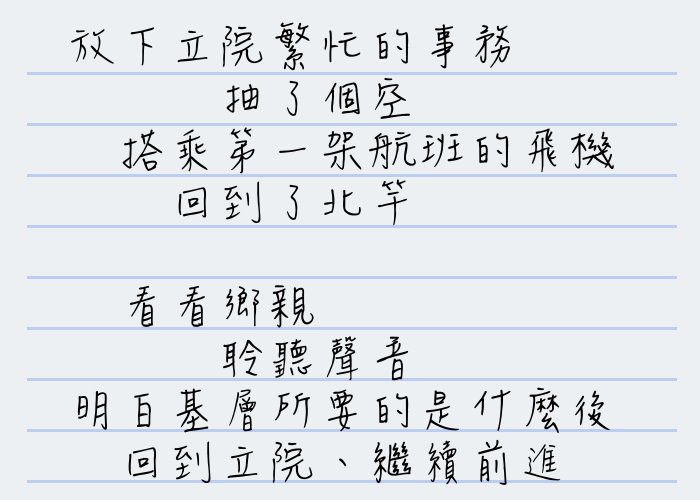 放下立院繁忙的事務
抽了個空
搭乘第一架航班的飛機
回到了北竿
看看鄉親
聆聽聲音
明白基層所要的是什麼後
回到立院、繼續前進